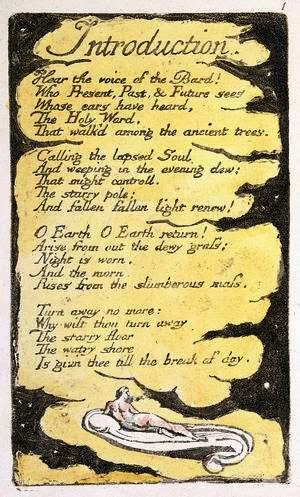 1
Introduction.
Hear the voice of the Bard!
Who Present, Past, & Future sees
Whose ears have heard,
The Holy Word,
That walk'd among the ancient trees.
Calling the lapsed Soul
And weeping in the evening dew:
That might controll.
The starry pole;
And fallen fallen light renew!
O Earth O Earth return!
Arise from out the dewy grass;
Night is worn.
And the morn
Rises from the slumberous mass.
Turn away no more:
Why wilt thou turn away
The starry floor
The watry shore
Is giv'n thee till the break of day.